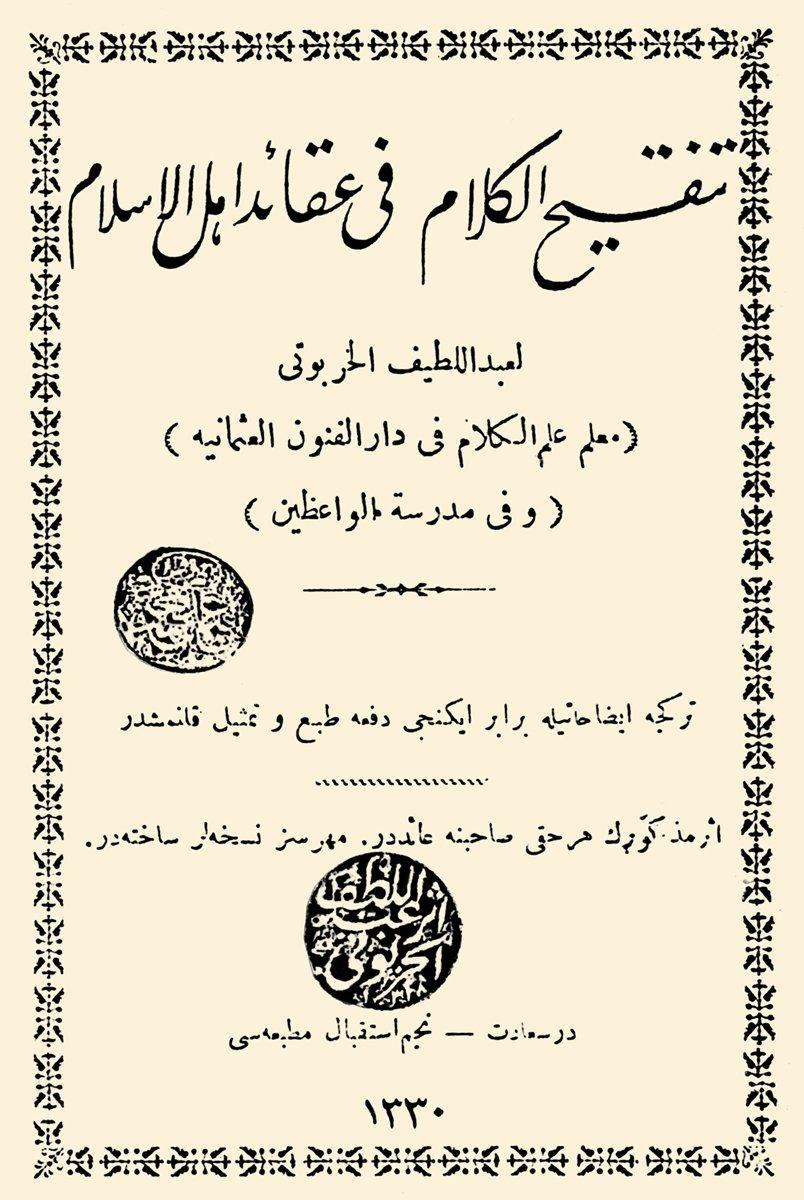 تنقيح الكلام فى عقائد اهل الاسلام
لعبد اللطيف الخربوتى
(معلم علم الكلام فى دار الفنون العثمانيه)
(و فى مدرسة الواعظين)
تركجه ايضاحاتيله برابر ايكنجى دفعه طبع و تمثيل قلنمشدر
اثر مذكورك هر حقى صاحبنه عائددر. مهرسز نسخه‌لر ساخته‌در.
اثر عبد اللطيف
الخربوتى
درسعادت — نجم استقبال مطبعه‌سى
١٣٣٠